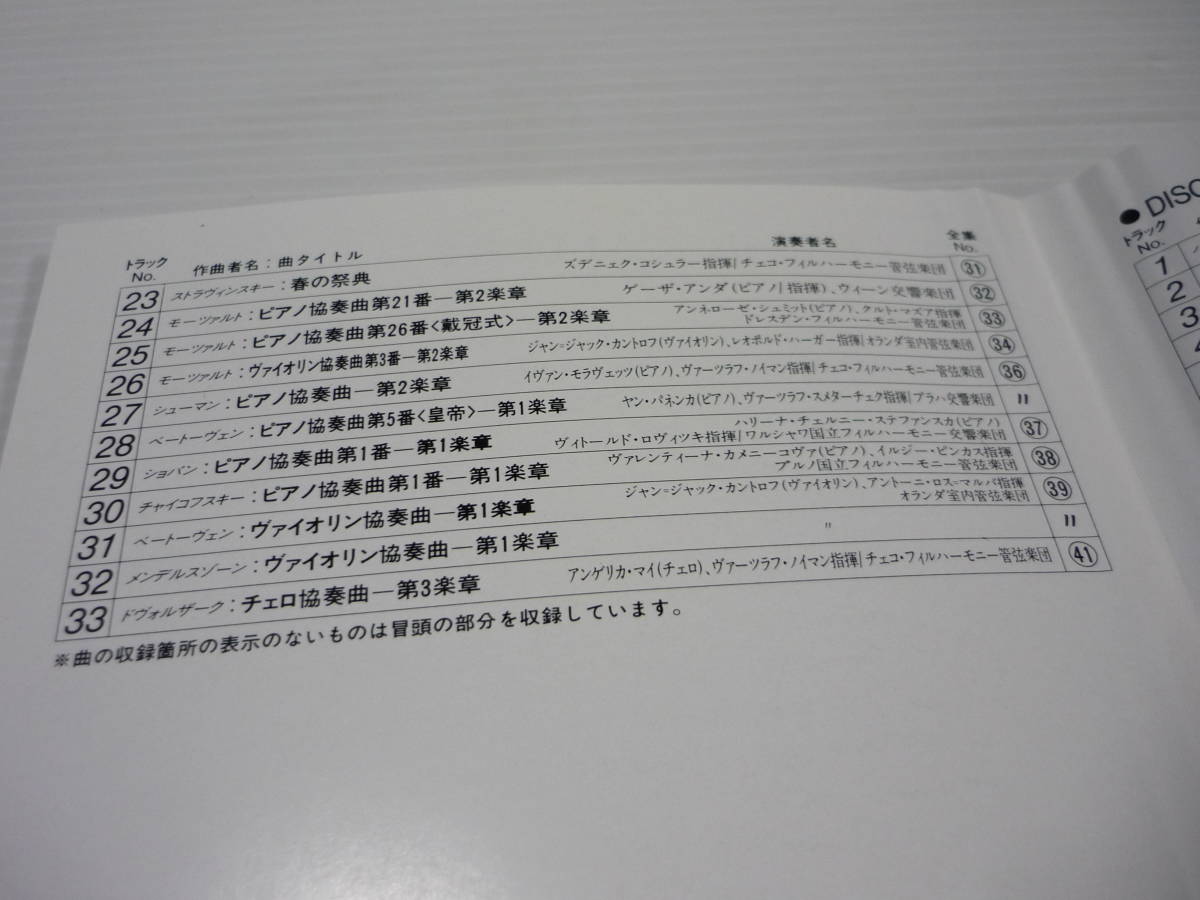 トラック No. 作曲者名：曲タイトル 演奏者名 全集 No.
23 ストラヴィンスキー：春の祭典 ズデニェク・コシュラー指揮/チェコ・フィルハーモニー管弦楽団 ㉛
24 モーツァルト：ピアノ協奏曲第21番—第2楽章 ゲーザ・アンダ(ピアノ/指揮)、ウィーン交響楽団 ㉜
25 モーツァルト：ピアノ協奏曲第26番〈戴冠式〉—第2楽章 アンネローゼ・シュミット(ピアノ)、クルト・マズア指揮
ドレスデン・フィルハーモニー管弦楽団 ㉝
26 モーツァルト：ヴァイオリン協奏曲第3番—第2楽章 ジャン=ジャック・カントロフ(ヴァイオリン)、レオポルド・ハーガー指揮/オランダ室内管弦楽団 ㉞
27 シューマン：ピアノ協奏曲—第2楽章 イヴァン・モラヴェッツ(ピアノ)、ヴァーツラフ・ノイマン指揮/チェコ・フィルハーモニー管弦楽団 ㊱
28 ベートーヴェン：ピアノ協奏曲第5番〈皇帝〉—第1楽章 ヤン・パネンカ(ピアノ)、ヴァーツラフ・スメターチェク指揮/プラハ交響楽団 〃
29 ショパン：ピアノ協奏曲第1番—第1楽章 ハリーナ・チェルニー・ステファンスカ(ピアノ)
ヴィトールド・ロヴィツキ指揮/ワルシャワ国立フィルハーモニー交響楽団 ㊲
30 チャイコフスキー：ピアノ協奏曲第1番—第1楽章 ヴァレンティーナ・カメニーコヴァ(ピアノ)、イルジー・ピンカス指揮
ブルノ国立フィルハーモニー管弦楽団 ㊳
31 ベートーヴェン：ヴァイオリン協奏曲—第1楽章 ジャン=ジャック・カントロフ(ヴァイオリン)、アントーニ・ロス=マルバ指揮
オランダ室内管弦楽団 ㊴
32 メンデルスゾーン：ヴァイオリン協奏曲—第1楽章 〃 〃
33 ドヴォルザーク：チェロ協奏曲—第3楽章 アンゲリカ・マイ(チェロ)、ヴァーツラフ・ノイマン指揮/チェコ・フィルハーモニー管弦楽団 ㊶
※曲の収録箇所の表示のないものは冒頭の部分を収録しています。
● DISC
トラック No.
1
2
3